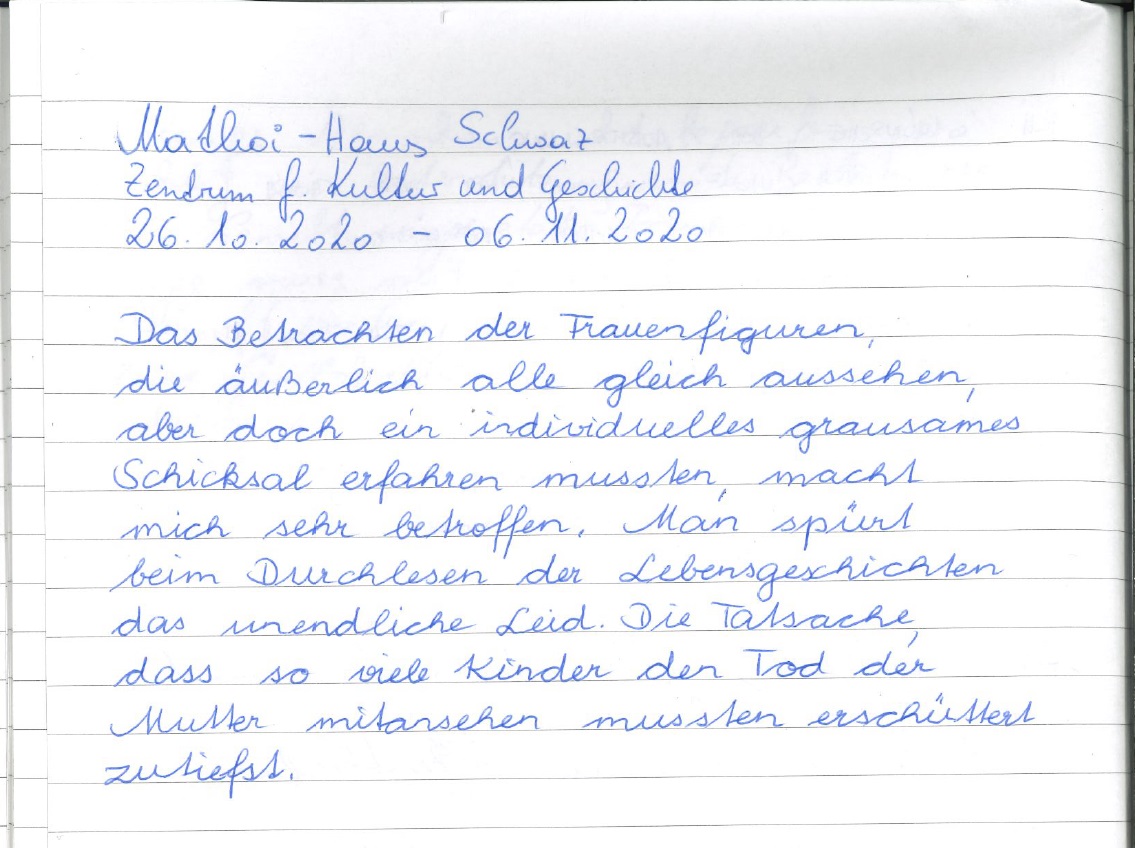 Mathoi-Haus Schwaz
Zentrum f. Kultur und Geschichte
26.10.2020 - 06.11.2020
Das Betrachten der Frauenfiguren,
die äußerlich alle gleich aussehen,
aber doch ein individuelles grausames
Schicksal erfahren mussten, macht
mich sehr betroffen. Man spürt
beim Durchlesen der Lebensgeschichten
das unendliche Leid. Die Tatsache,
dass so viele Kinder den Tod der
Mutter mitansehen mussten erschüttert
zutiefst.